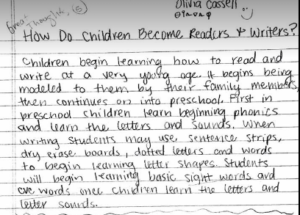 Olivia Cassell
How Do Children Become Readers & Writers?
Children begin learning how to read and
write at a very young age. It begins being
modeled to them by their family members,
then continues on into preschool. First in
preschool children learn beginning phonics
and learn the letters and sounds. When
writing students may use sentence strips,
dry erase boards, dotted letters and words
to begin learning letter shapes. Students
will begin learning basic sight words and
cvc words once children learn the letters and
letter sounds.